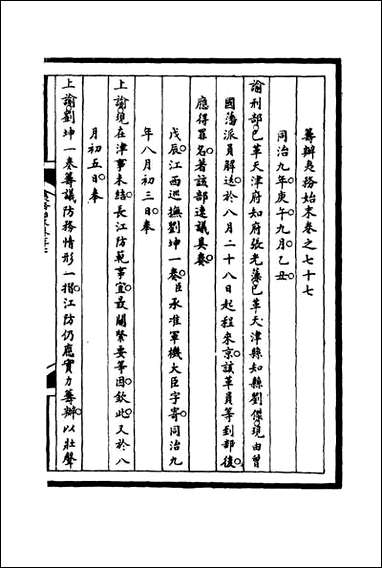 籌辦夷務始末卷之七十七
同治九年庚午九月乙丑
諭刑部已革天津府知府張光藻已革天津縣知縣劉傑現由曾
國藩派員解送於八月二十八日起程來京該革員等到部後
應得罪名著該部速議具奏
戊辰江西巡撫劉坤一奏臣承准軍機大臣字寄同治九
年八月初三日奉
上諭現在津事未結長江防範事宜最關緊要等因欽此又於八
月初五日奉
上諭劉坤一奏籌議防務情形一摺江防仍應實力籌辦以壯聲